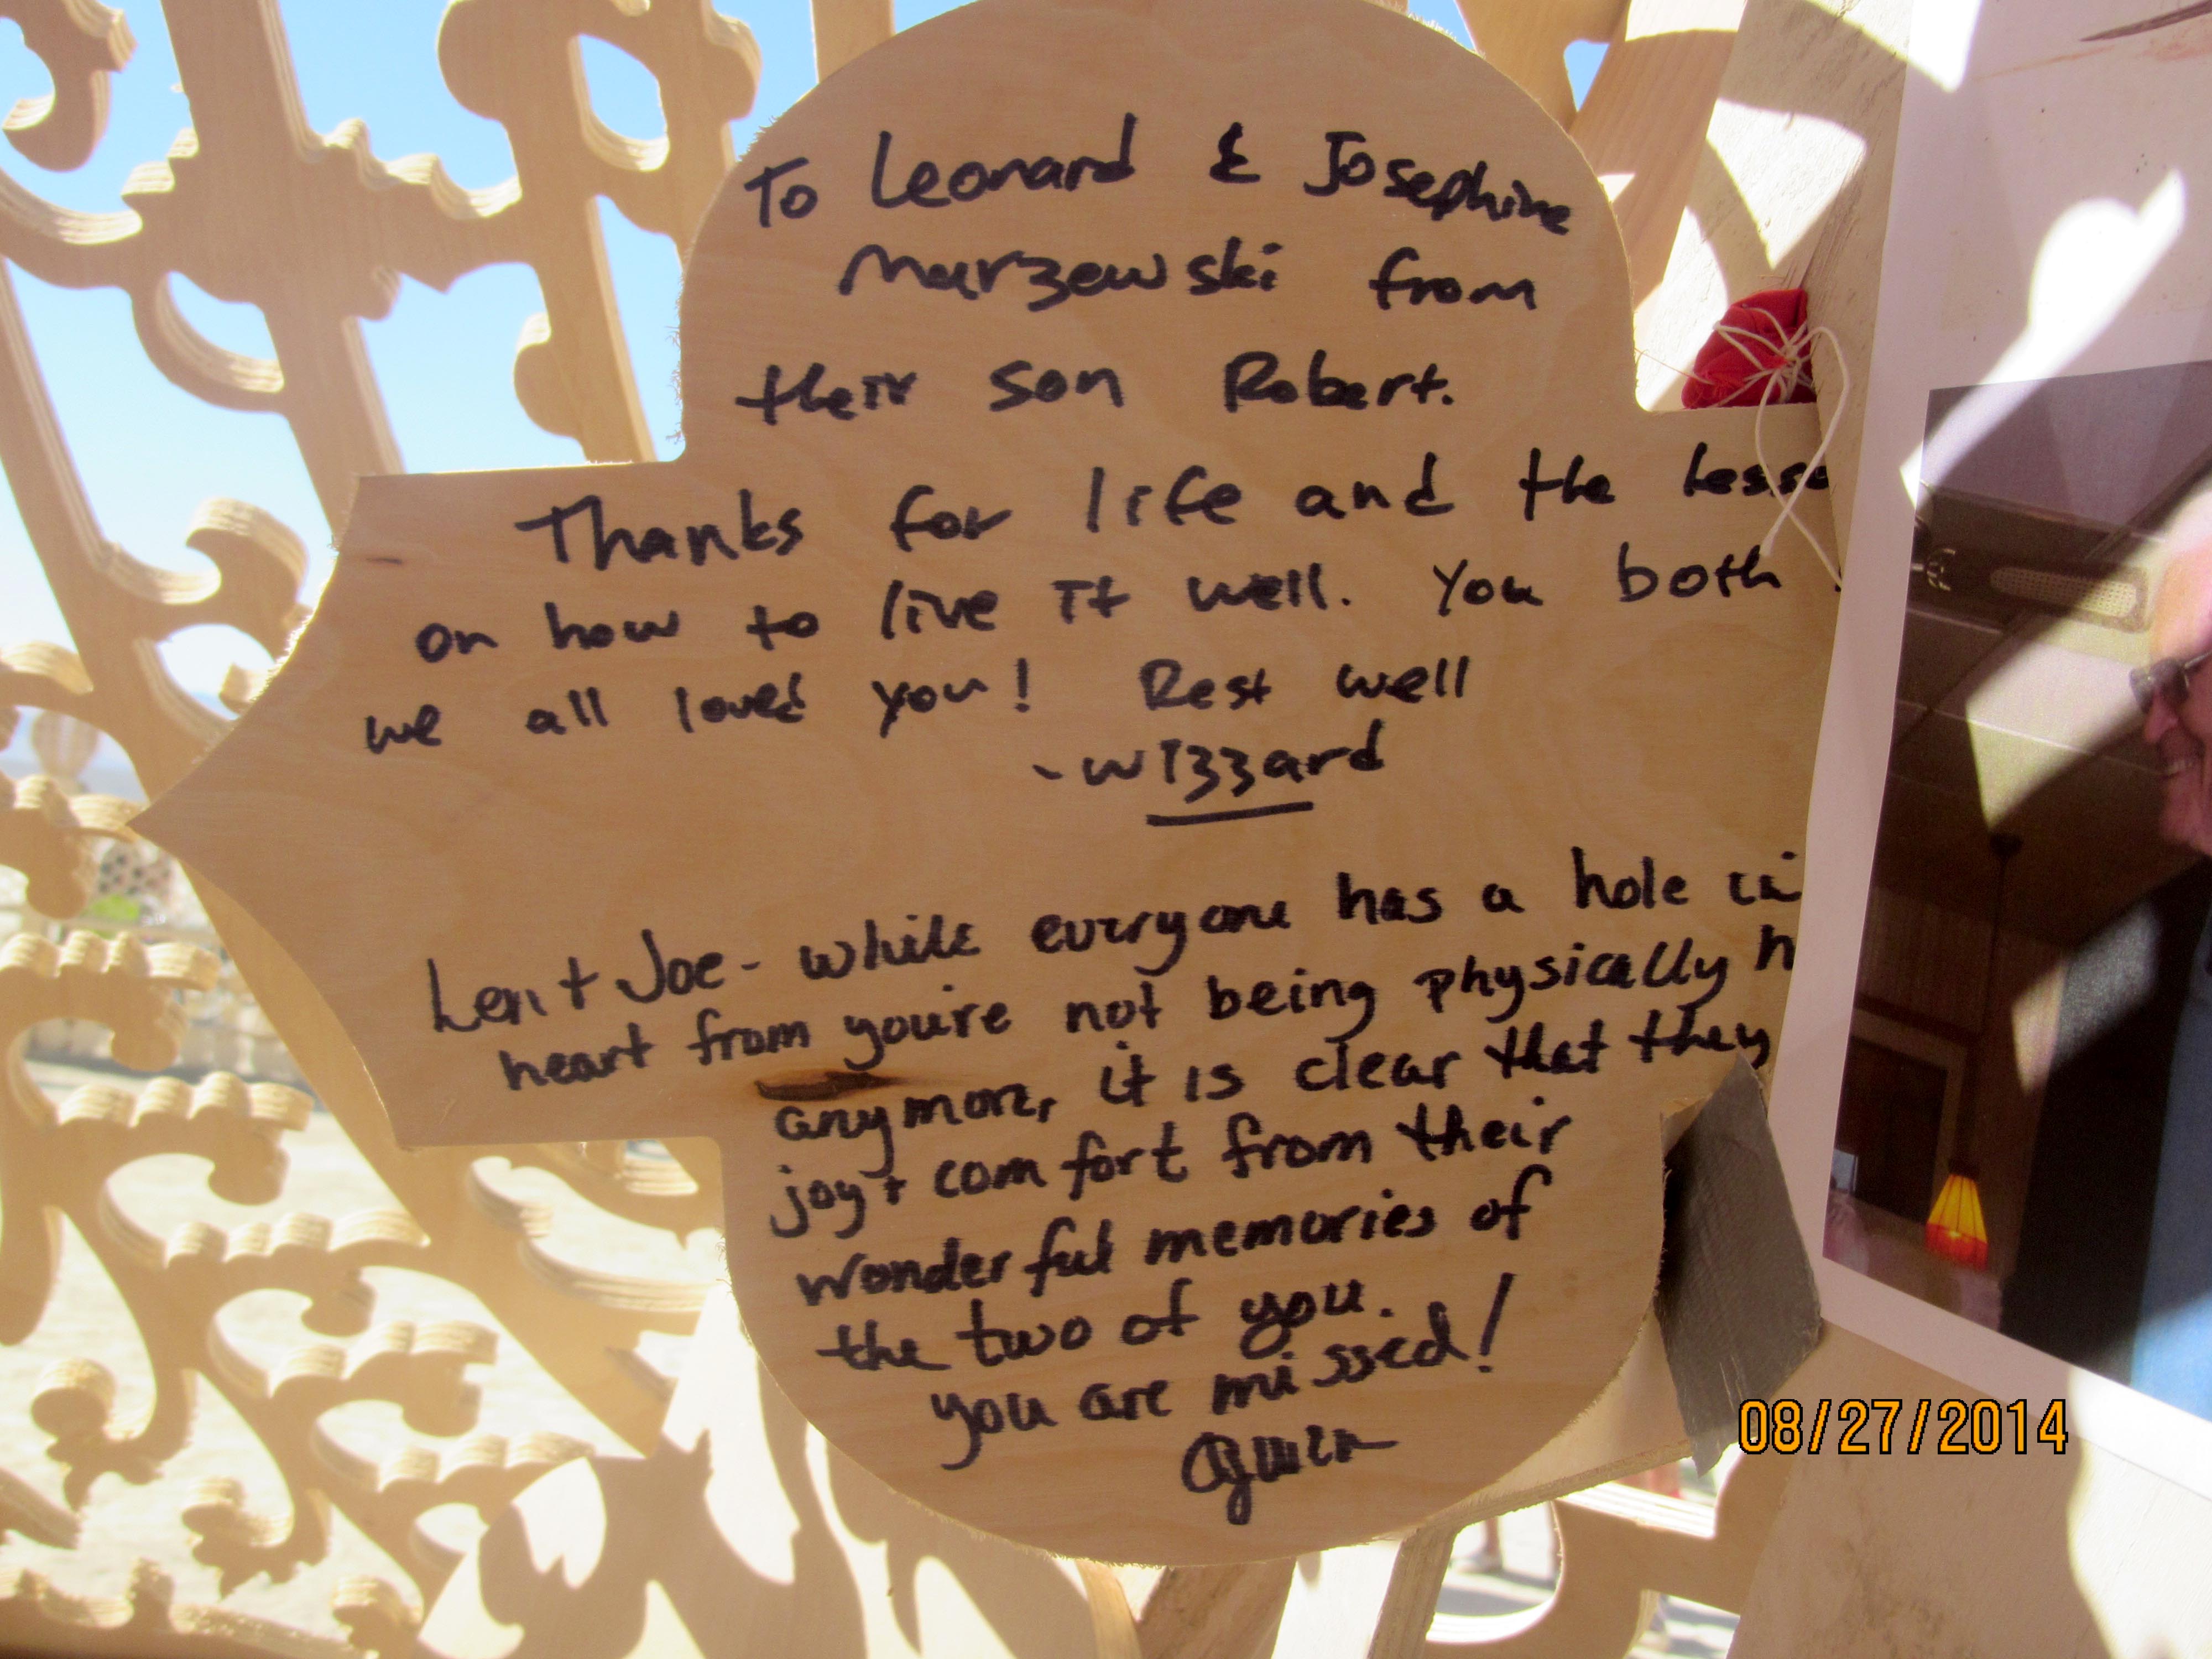 To Leonard & Josephine
Marzewski from
their son Robert.
Thanks for life and the lesso
on how to live it well. You both
we all loved you! Rest well
- Wizzard
Len + Joe - while everyone has a hole in
heart from you're not being physically h
anymore, it is clear that they
joy + comfort from their
wonderful memories of
the two of you.
you are missed!
08/27/2014